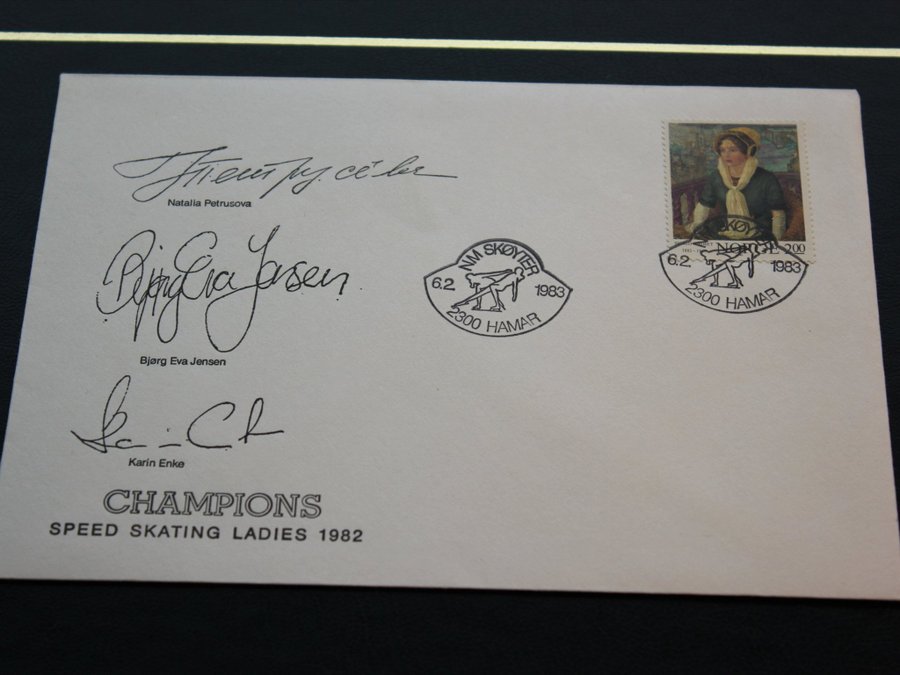 Natalia Petrusova
Bjørg Eva Jensen
Bjørg Eva Jensen
Karin Enke
CHAMPIONS
SPEED SKATING LADIES 1982
NM SKØYTER
6.2. 1983
2300 HAMAR
NORGE 200
NM SKØYTER
6.2. 1983
2300 HAMAR